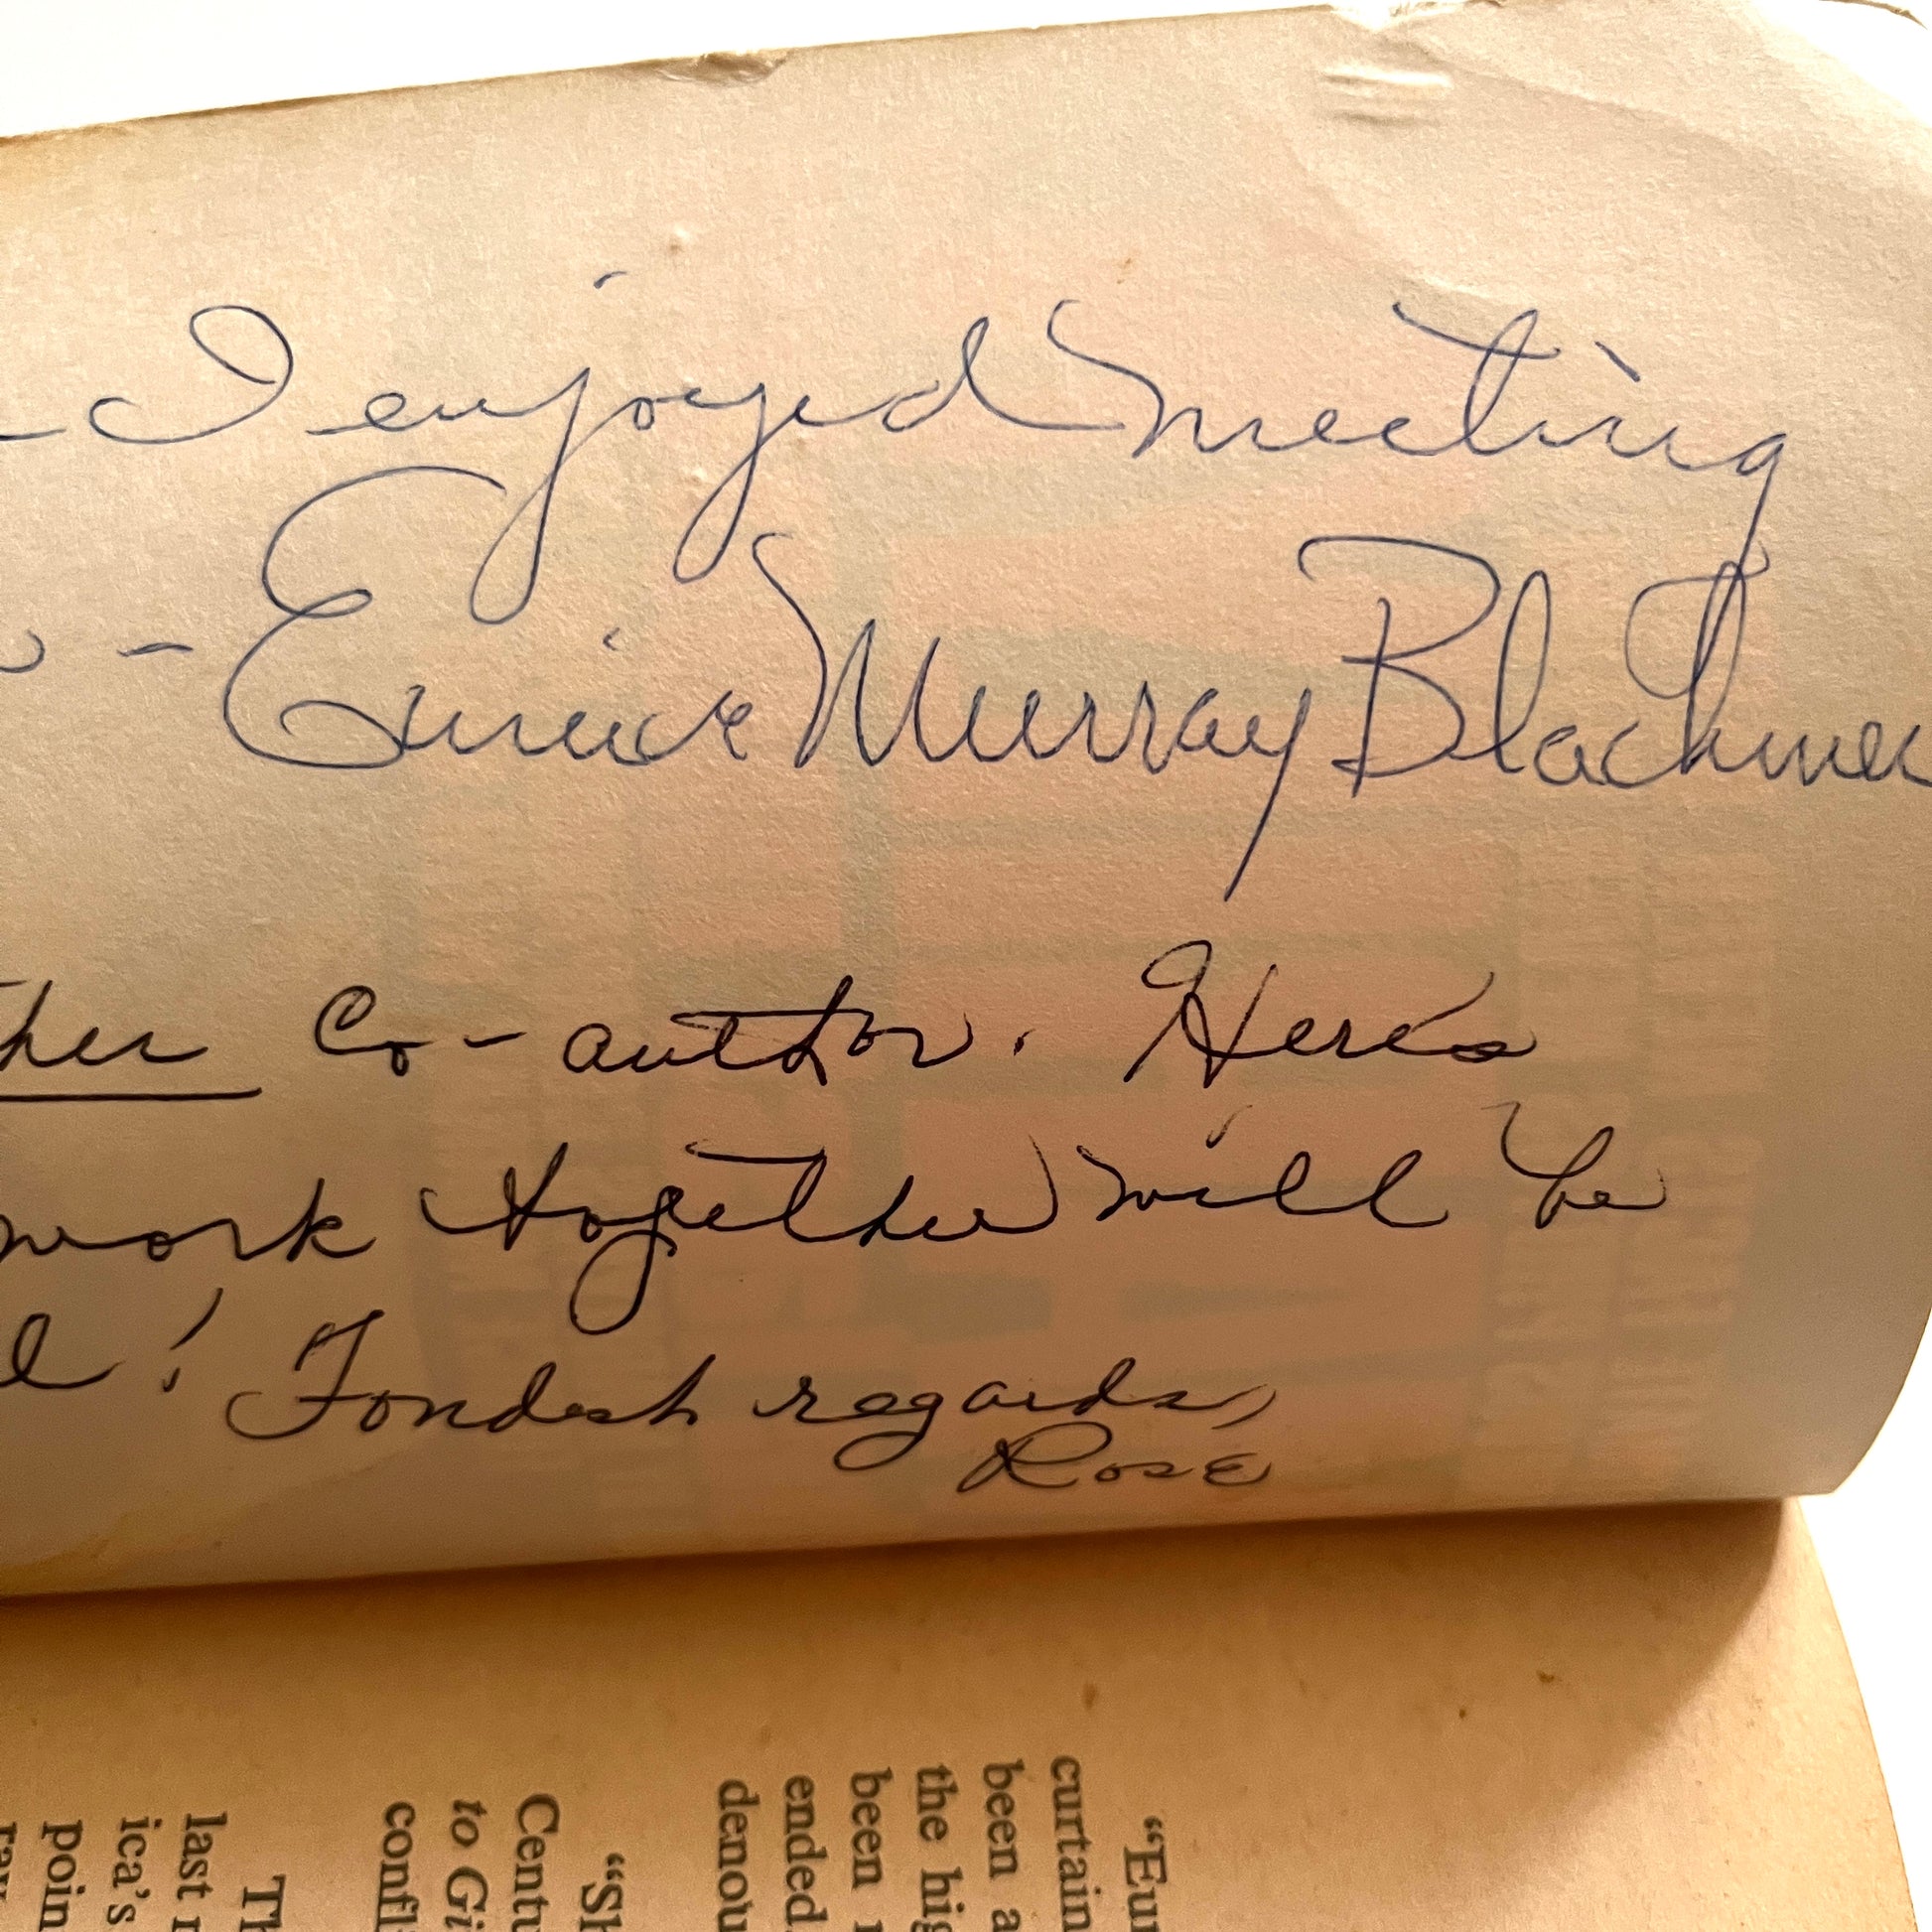 I enjoyed meeting
- Eunice Murray Blackmer
ther Co-author. Here's
work together will be
l! Fondest regards,
Rose
"Eur
curtain
been a
the hig
been
ended.
denou
"Sh
Centu
to Gi
confl
Th
last
ica's
poin